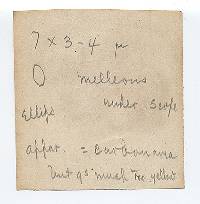 7 x 3-4 µ
melleous
under scope
Ellips
appar. = Carbonaria
but gs much too yellow